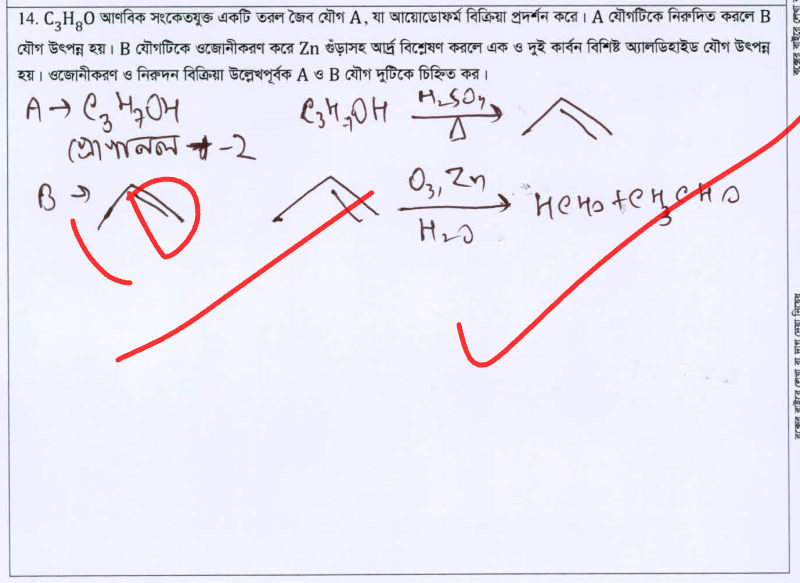 14. C₃H₈O আণবিক সংকেতযুক্ত একটি তরল জৈব যৌগ A, যা আয়োডোফর্ম বিক্রিয়া প্রদর্শন করে। A যৌগটিকে নিরুদিত করলে B
যৌগ উৎপন্ন হয়। B যৌগটিকে ওজোনীকরণ করে Zn গুঁড়াসহ আর্দ্র বিশ্লেষণ করলে এক ও দুই কার্বন বিশিষ্ট অ্যালডিহাইড যৌগ উৎপন্ন
হয়। ওজোনীকরণ ও নিরুদন বিক্রিয়া উল্লেখপূর্বক A ও B যৌগ দুটিকে চিহ্নিত কর।
A → C₃H₇OH
C₃H₇OH H₂SO₄ Δ
প্রোপানল -2
B →
O₃, Zn H₂O HCHO + CH₃CHO